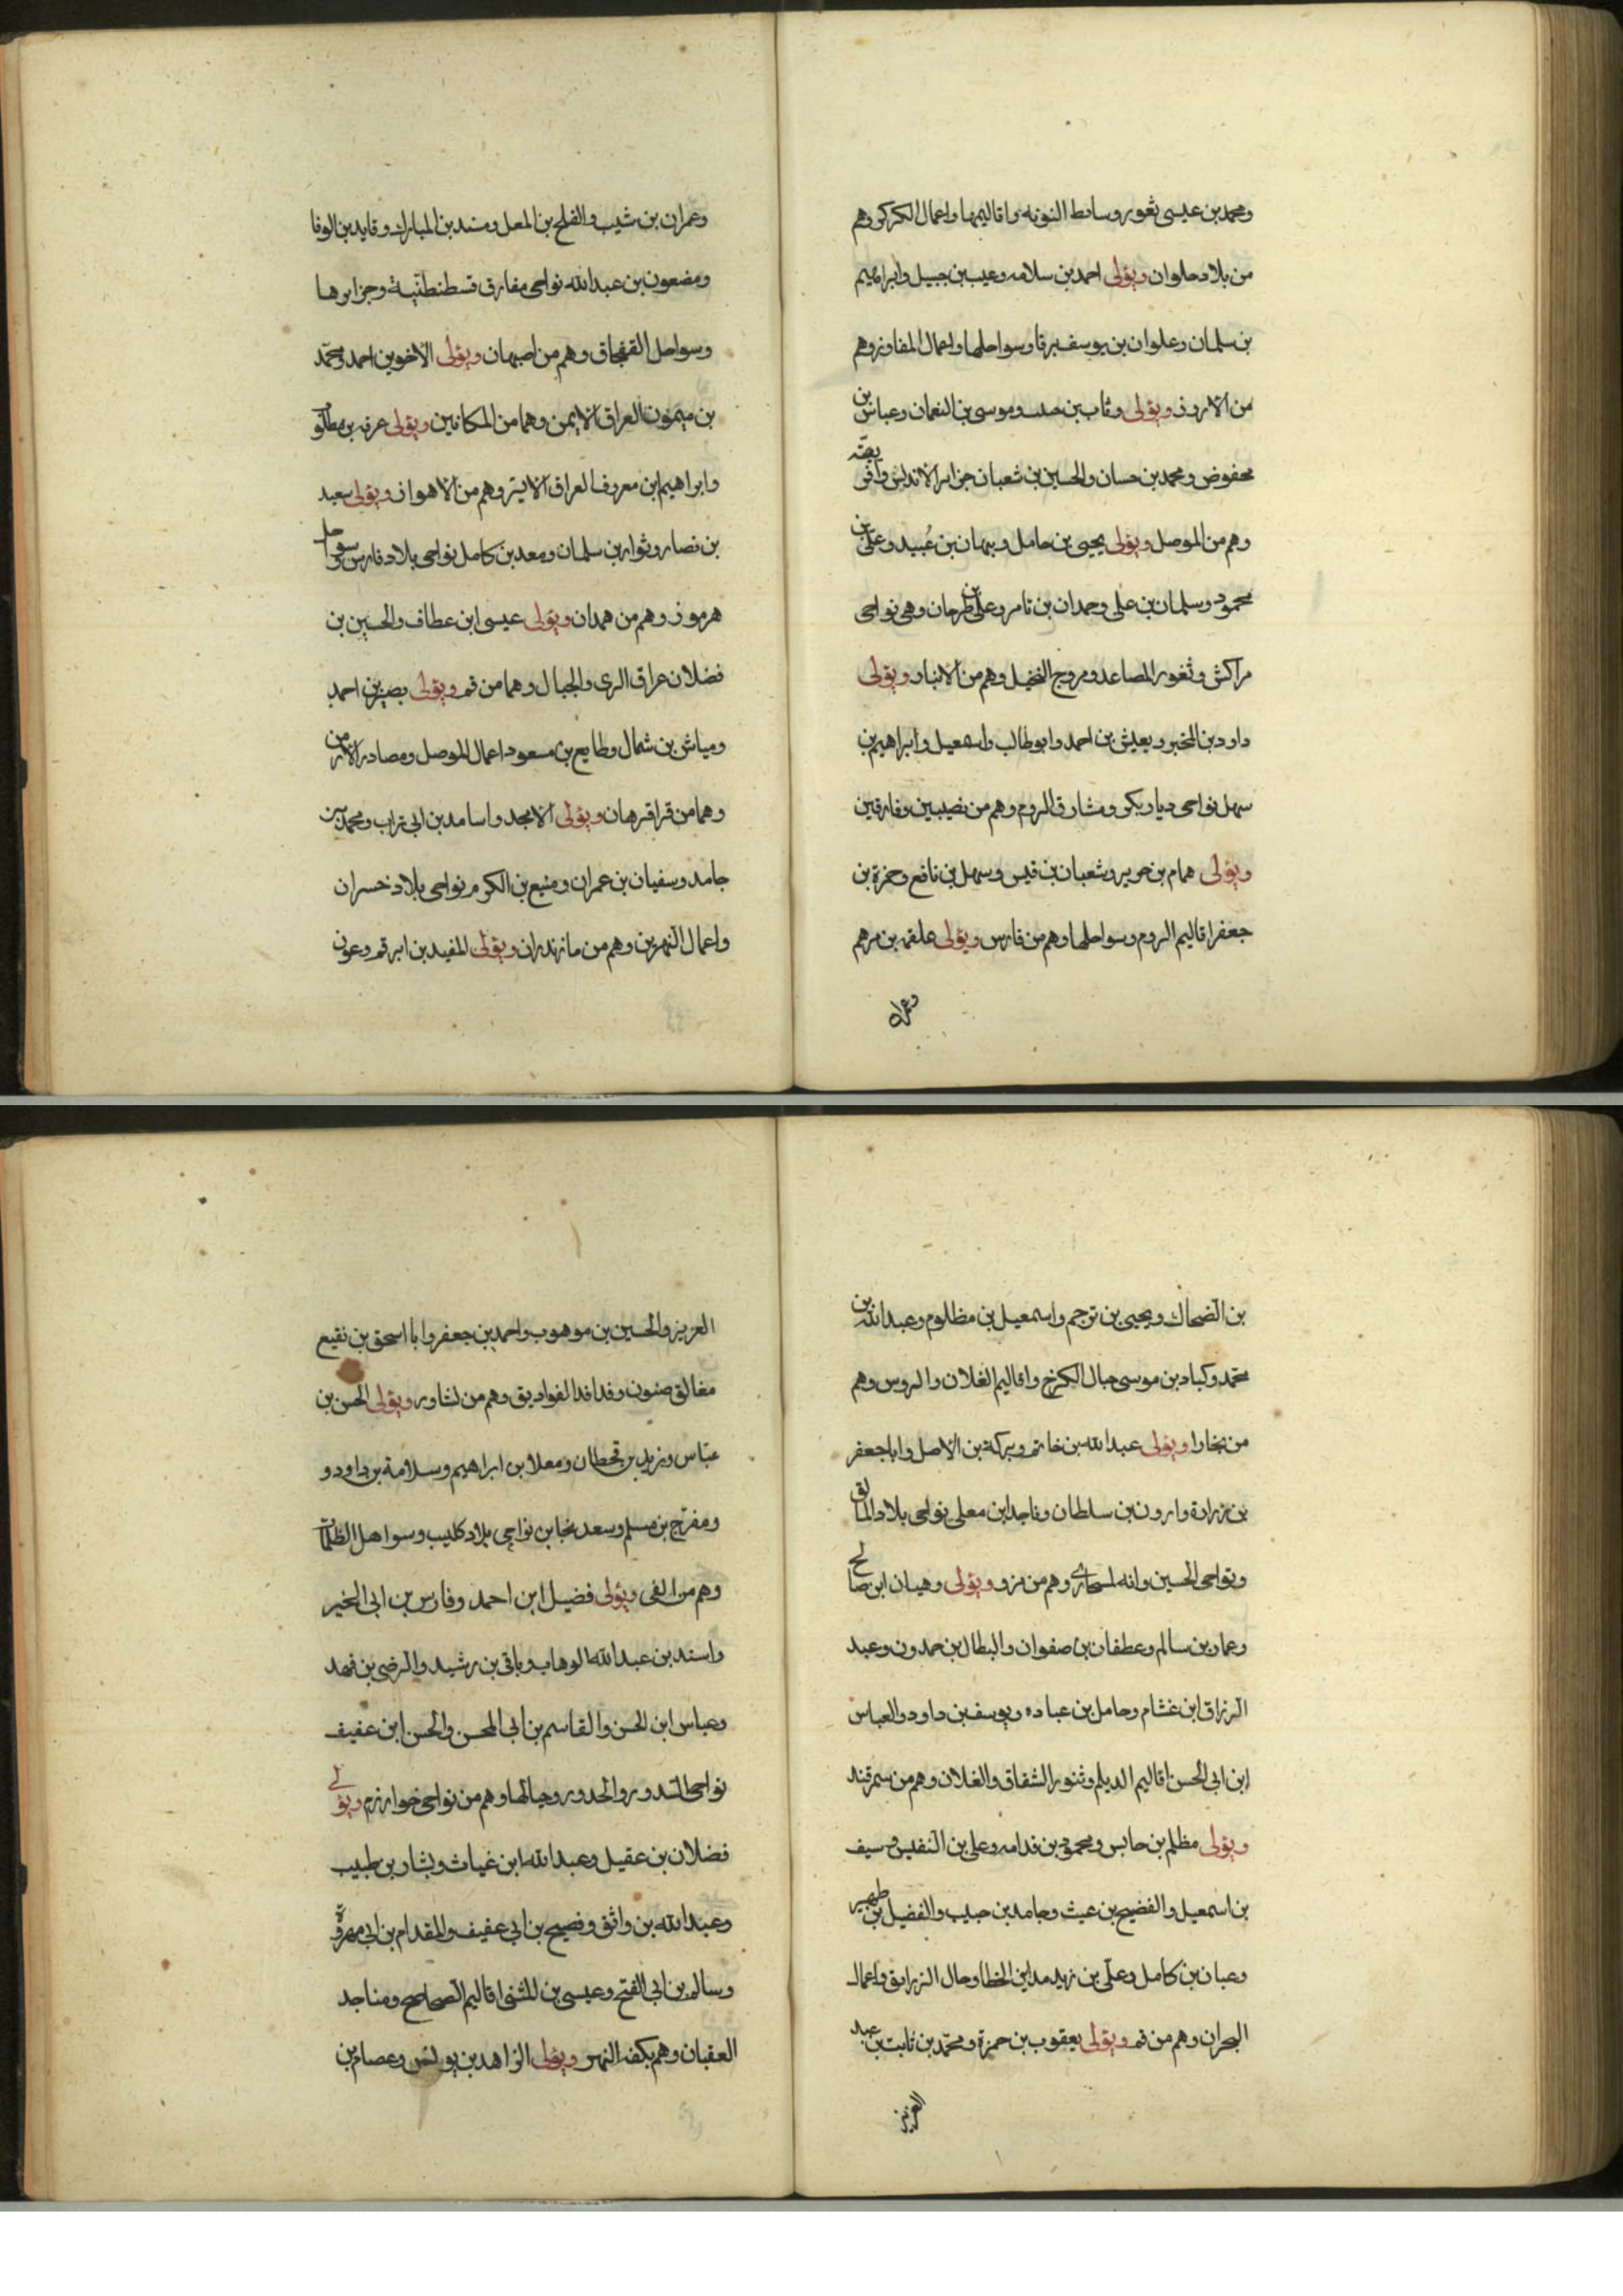 ومحمد بن عيسى ثغور وساط النوبه واقاليمها واعمال الكركر وهم
من بلاد حلوان ويولى احمد بن سلامه وعيب بن جبيل وابراهيم
بن سلمان وعلوان بن يوسف برقا وسواحلها واعمال المفاوز وهم
من الاروف ويولى وثاب بن حبيب وموسى بن النعمان وعباس بن
محفوض ومحمد بن حسان والحسين بن شعبان جزاير الاندلس وافريقيه
وهم من الموصل ويولى يحيى بن حامل وبهان بن عُبيد وعلى بن
محمود وسلمان بن على وحمدان بن تامر وعلى بن طرحان وهى نواحى
مراكش وثغور المصاعد ومروج النخيل وهم من الانبار ويولى
داود بن المخبر ويعيش بن احمد وابو طالب واسمعيل وابراهيم بن
سهل نواحى ديار بكر ومشارق الروم وهم من نصيبين وفارقين
ويولى همام بن جرير وشعبان بن قيس وسهل بن نافع وحمزة بن
جعفر اقاليم الروم وسواحلها وهم من فارس ويولى علقمه بن مرهم
وعمران
وعمران بن شيب والفلح بن المعل ومسند بن المبارك وقايد بن الوفا
ومضعون بن عبد الله نواحى مفارق قسطنطنية وجزايرها
وسواحل القفجاق وهم من اصبهان ويولى الاخوين احمد ومحمد
بن ميمون العراق الايمن وهما من المكانين ويولى عرفه بن
وابراهيم ابن معروف العراق الايسر وهم من الاهواز ويولى سعيد
بن نصار وثوار بن سلمان ومعد بن كامل نواحى بلاد فارس وسواحل
هرموز وهم من همدان ويولى عيسى ابن عطاف والحسين بن
فضلان عراق الرى والجبال وهما من قم ويولى بصير بن احمد
ومياش بن شمال وطايع بن مسعود اعمال الموصل ومصادر الارمن
وهما من قراقرهان ويولى الامجد واسامد بن ابى تراب ومحمد بن
جامد وسفيان بن عمران ومنيع بن الكرم نواحى بلاد خسران
واعمال النهرين وهم من مازندران ويولى المفيد بن ابرقم وعون
بن الضحاك ويحيى بن ترجم واسمعيل بن مظلوم وعبد الله بن
محمد وكباد بن موسى جبال الكرخ واقاليم الغلان والروس وهم
من بخارا ويولى عبد الله بن خاتم وبركة بن الاصل وابا جعفر
بن زرادة وارون بن سلطان وماجد ابن معلى نواحى بلاد المالق
ونواحى الحسين وانه وهم من مزو ويولى وهبان ابن صالح
وعماد بن سالم وعطفان بن صفوان والبطال بن حمدون وعبد
الرزاق ابن غشام وحامل بن عباده ويوسف بن داود والعباس
ابن ابى الحسن اقاليم الديلم وثنور الشقاق والغلان وهم من سمرقند
ويولى مظلم بن حابس ومحمود بن قدامه وعلى بن النفيس وسيف
بن اسمعيل والفضيح بن غيث وجامد بن حبيب والفضيل بن طهير
وعبان بن كامل وعلى بن زيد مداين الخطا وجال الزرايق واعمال
البحران وهم من قم ويولى يعقوب بن حمزة ومحمد بن ثابت بن عبد
العزيز
العزيز والحسين بن موهوب واحمد بن جعفر وابا اسحق بن نقيع
مغالق صنون وفدافد الفواديق وهم من نشاور ويولى الحسن بن
عباس وزيد بن قحطان ومعلا بن ابراهيم وسلامة بن داود و
ومفرج بن مسلم وسعد بن نواحى بلاد كليب وسواهل الظلمات
وهم من الفى ويولى فضيل ابن احمد وفارس بن ابى الخير
واسند بن عبد الله الوهاب وباقى بن رشيد والرضى بن فهد
وعباس ابن الحسن والقاسم بن ابى المحسن والحسن ابن عفيف
نواحى السدور والحدور وجبالها وهم من نواحى خوارزم ويولى
فضلان بن عقيل وعبد الله ابن غياث وبشار بن طبيب
وعبد الله بن واثق وفصيح بن ابى عفيف والمقدام بن ابى مهر
وسالم بن ابى الفتح وعيسى بن المثنى اقاليم الصحاصح ومناجد
العقبان وهم بكف النهر ويولى الزاهد بن يونس وعصام بن